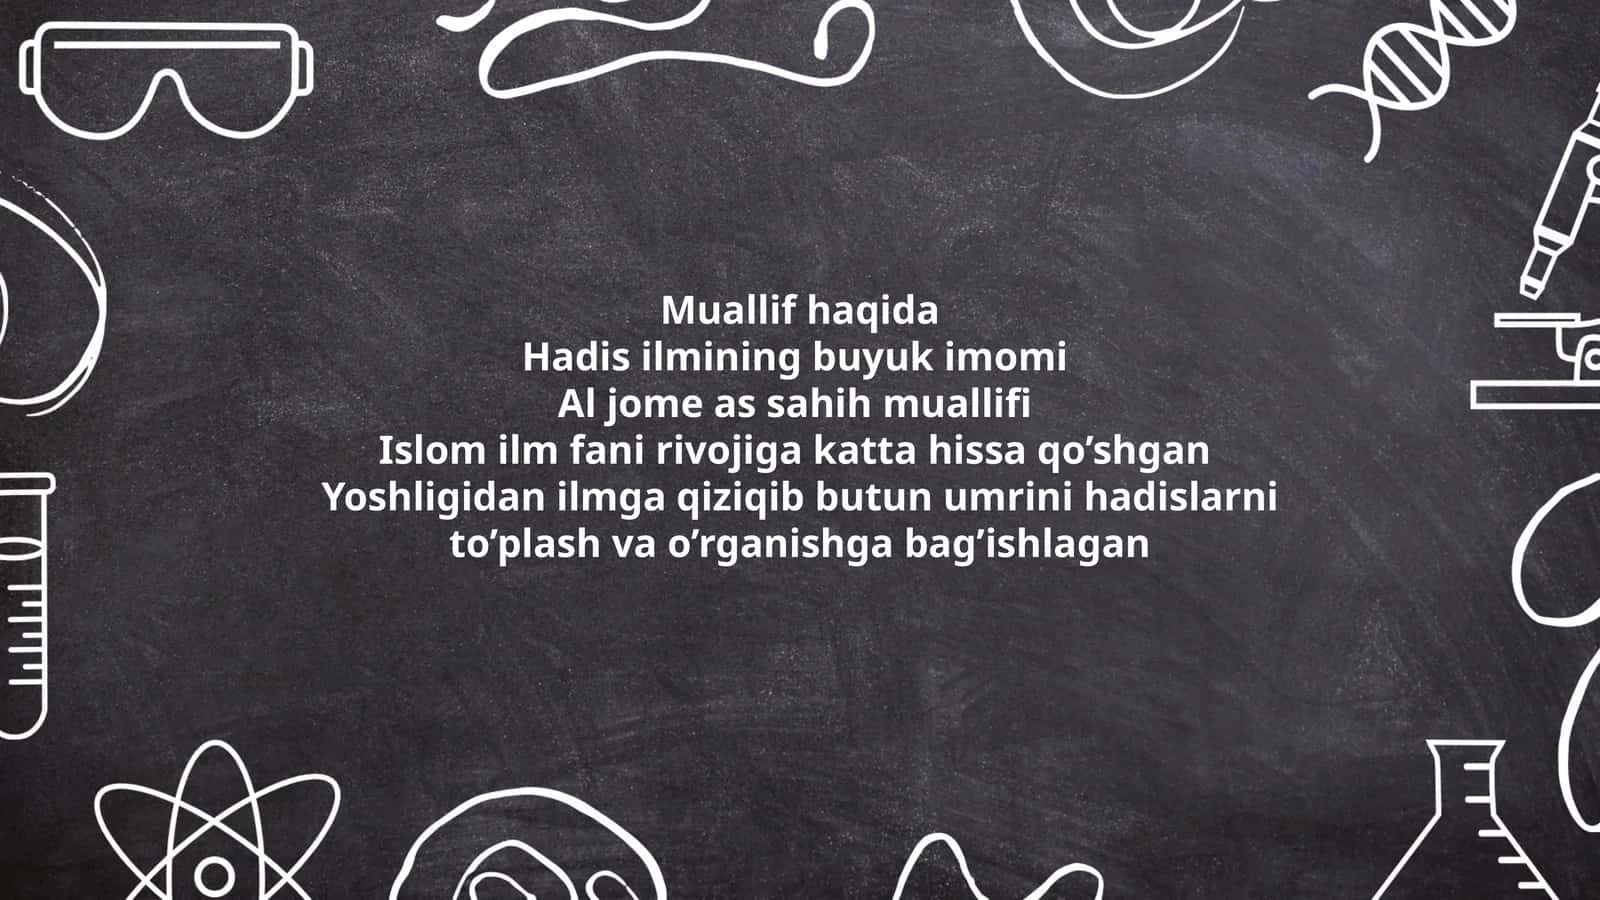 Muallif haqida
Hadis ilmining buyuk imomi
Al jome as sahih muallifi
Islom ilm fani rivojiga katta hissa qo’shgan
Yoshligidan ilmga qiziqib butun umrini hadislarni
to’plash va o’rganishga bag’ishlagan